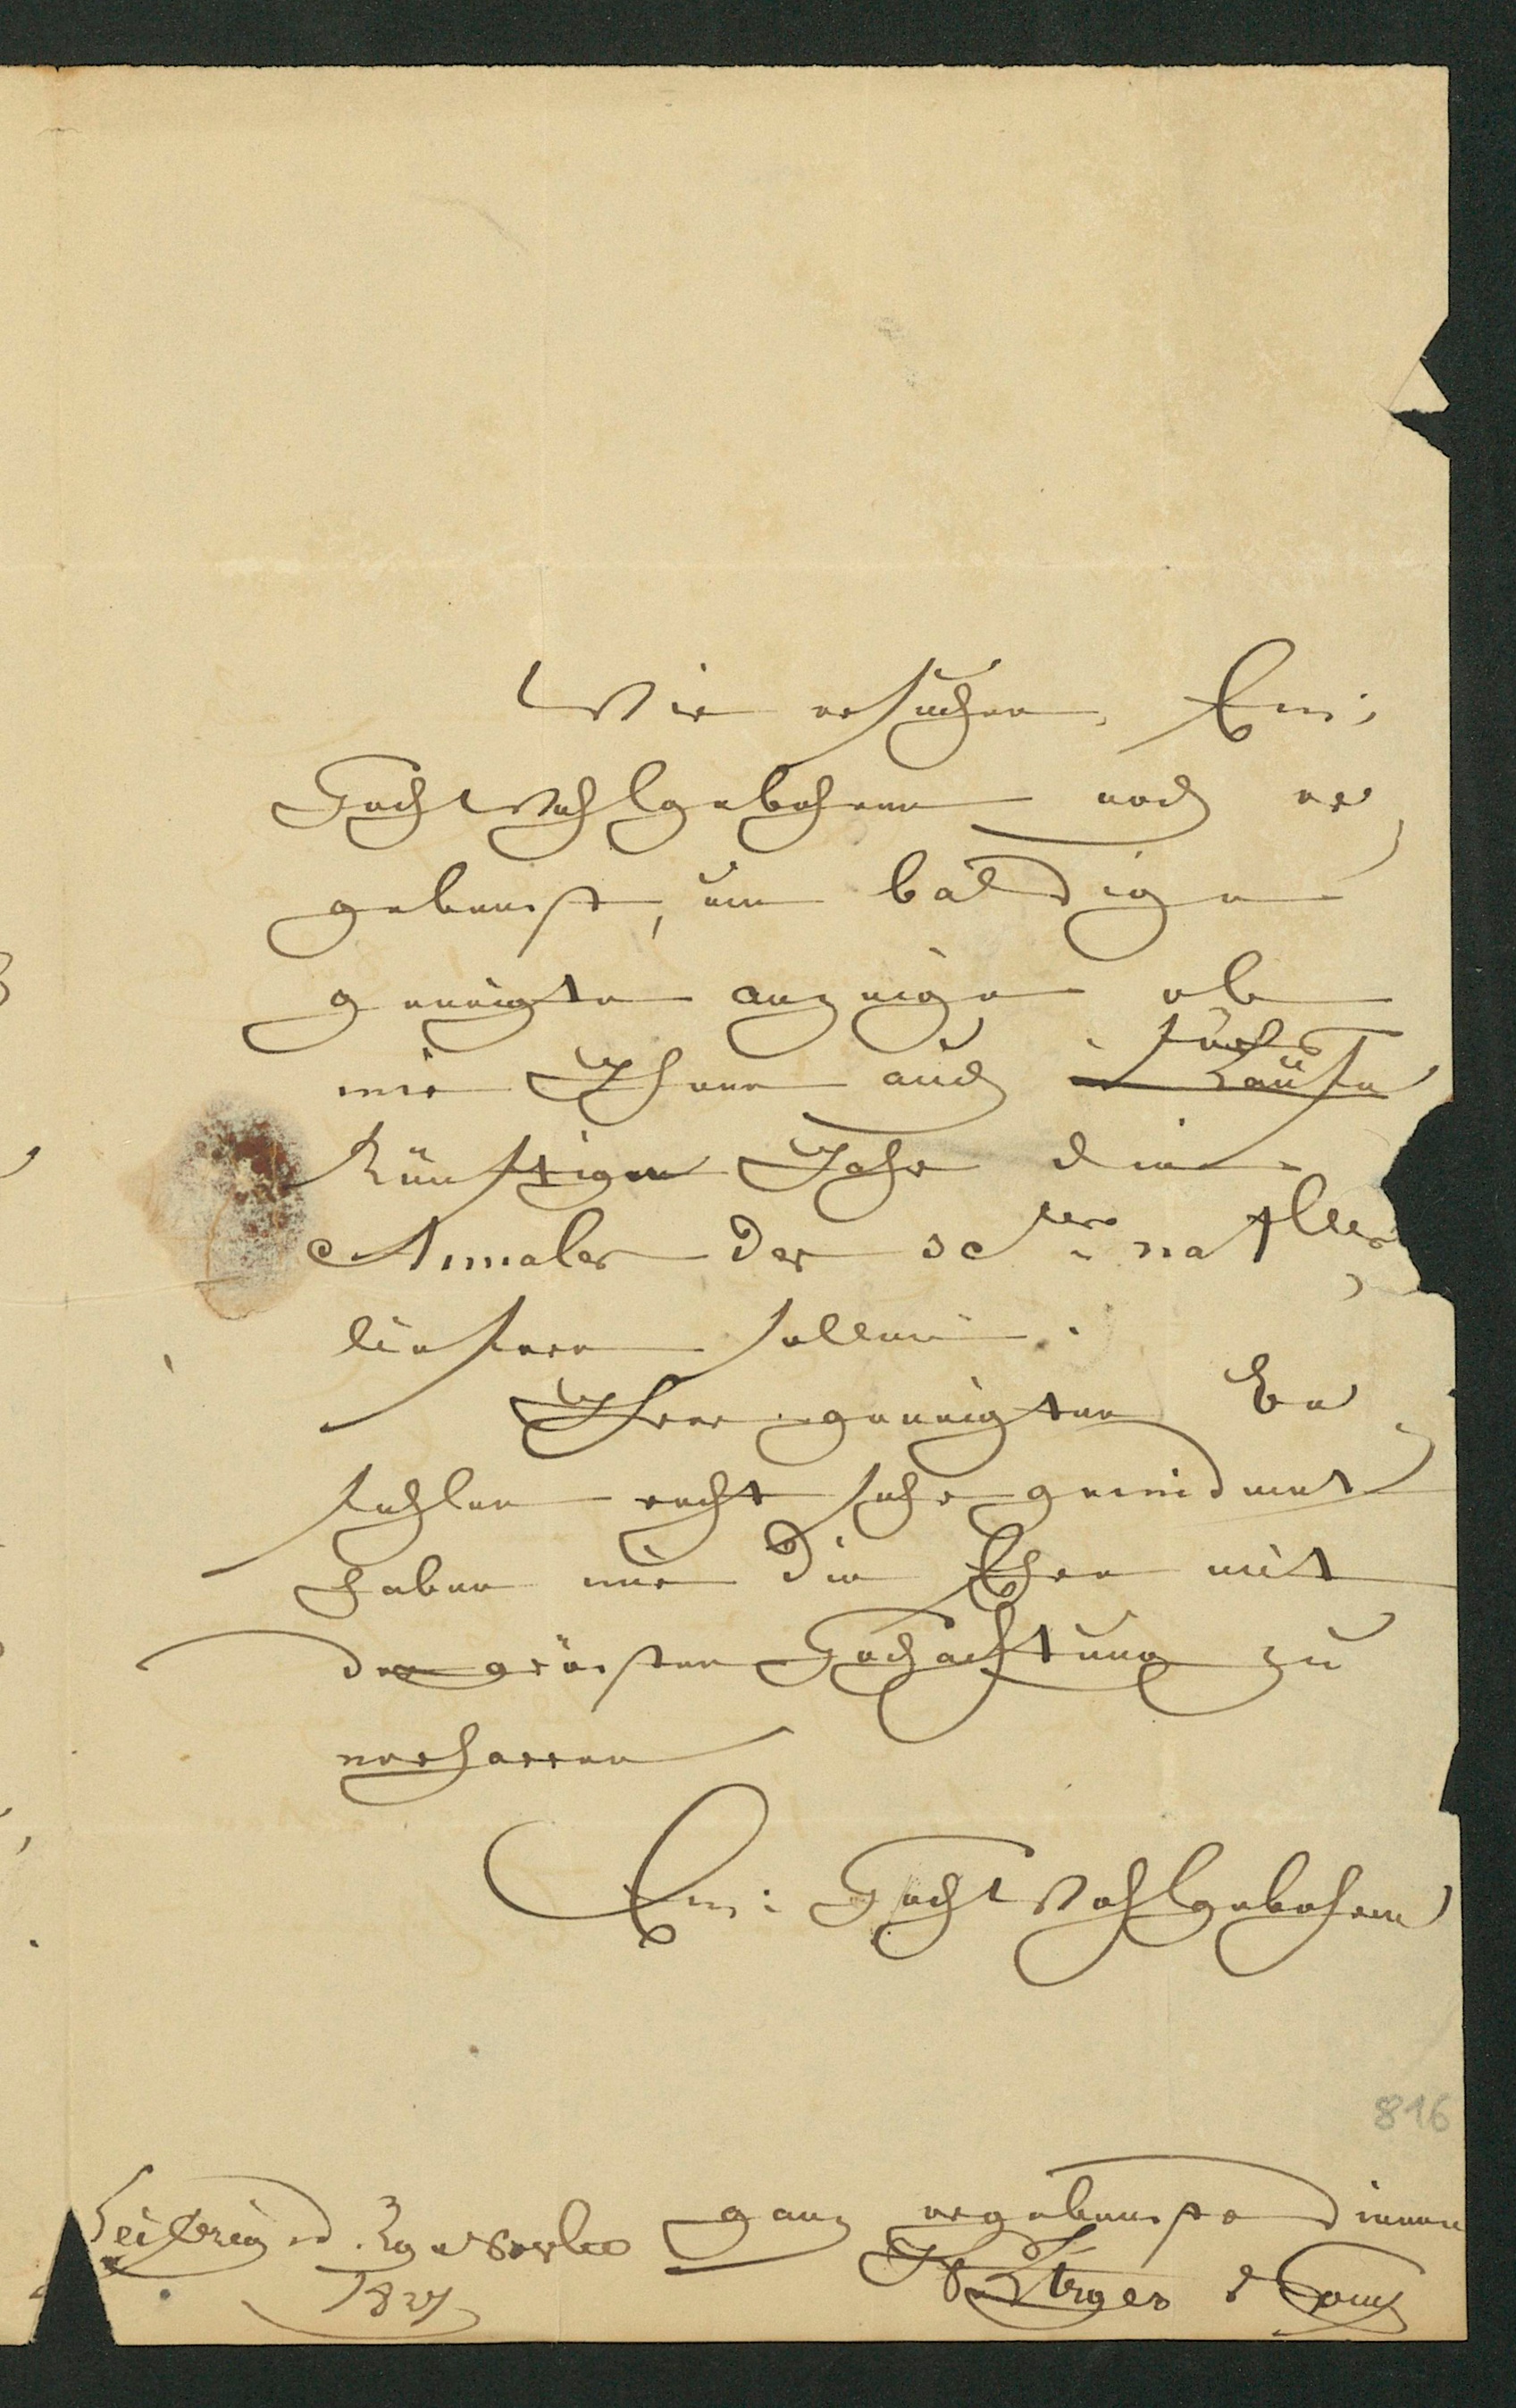 Wir ersuchen Ew:
HochWohlgebohren noch er
gebenst, um baldige
geneigte anzeige ob
wir Ihnen auch fürs
künftige Jahr die
Annales des scien: natlles
liefern sollen.
Ihren geneigten Be
fehlen recht sehr gewidmet
haben wir die Ehre mit
der grössten Hochachtung zu
verharren
Ew: HochWohlgebohren
816
Leipzig d.
ganz ergebenste Diener
1827
& Comp